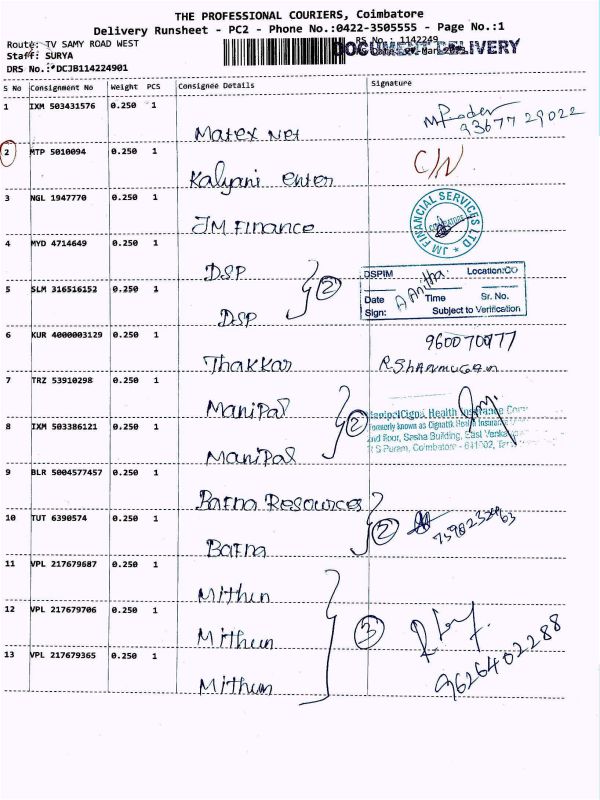 THE PROFESSIONAL COURIERS, Coimbatore
Delivery Runsheet - PC2 - Phone No.:0422-3505555 - Page No.:1
Route: TV SAMY ROAD WEST
RS No.: 1142249
DOCUMENT DELIVERY
Staff: SURYA
DRS No.:*DCJB114224901
S No Consignment No Weight PCS Consignee Details Signature
1 IXM 503431576 0.250 1
Matex Net
93677 29022
2 MTP 5010094 0.250 1
Kalyani enter
C/N
3 NGL 1947770 0.250 1
JM Finance
JM FINANCIAL SERVICES LTD
COIMBATORE
4 MYD 4714649 0.250 1
DSP
2
DSPIM Location:CO
Anitha
Date Time Sr. No.
Sign: Subject to Verification
5 SLM 316516152 0.250 1
DSP
6 KUR 4000003129 0.250 1
Thakkar
960070977
R.Shanmugan
7 TRZ 53910298 0.250 1
Manipal
2
ManipalCigna Health Insurance Com
Formerly known as Cignattk Health Insurance
2nd floor, Sasha Building, East Venka
R S Puram, Coimbatore - 641002,
8 IXM 503386121 0.250 1
Manipal
9 BLR 5004577457 0.250 1
Bafna Resources
2
10 TUT 6390574 0.250 1
Bafna
11 VPL 217679687 0.250 1
Mithun
12 VPL 217679706 0.250 1
Mithun
3
9626402288
13 VPL 217679365 0.250 1
Mithun